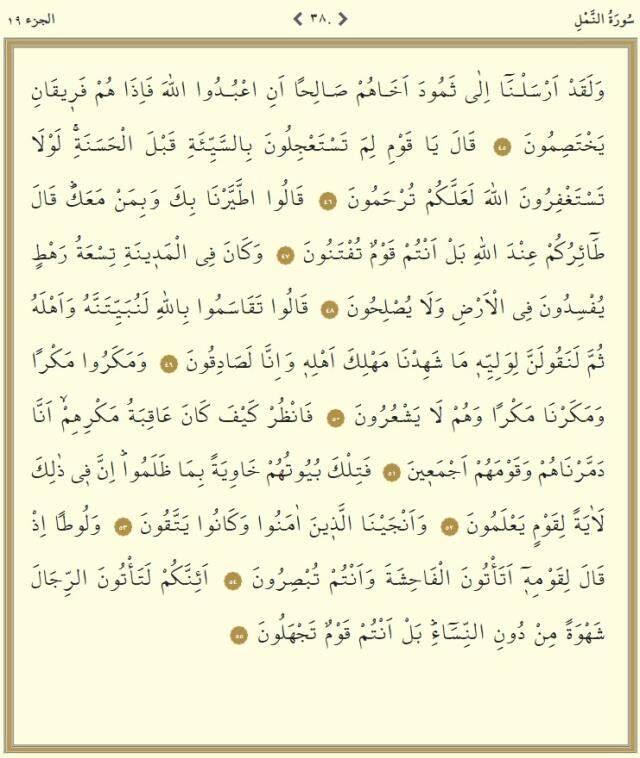 سُورَةُ النَّمْلِ ٣٨٠ الجزء ١٩
وَلَقَدْ اَرْسَلْنَٓا اِلٰى ثَمُودَ اَخَاهُمْ صَالِحًا اَنِ اعْبُدُوا اللهَ فَاِذَا هُمْ فَر۪يقَانِ
يَخْتَصِمُونَ ٤٥ قَالَ يَا قَوْمِ لِمَ تَسْتَعْجِلُونَ بِالسَّيِّئَةِ قَبْلَ الْحَسَنَةِۚ لَوْلَا
تَسْتَغْفِرُونَ اللهَ لَعَلَّكُمْ تُرْحَمُونَ ٤٦ قَالُوا اطَّيَّرْنَا بِكَ وَبِمَنْ مَعَكَۜ قَالَ
طَٓائِرُكُمْ عِنْدَ اللهِ بَلْ اَنْتُمْ قَوْمٌ تُفْتَنُونَ ٤٧ وَكَانَ فِى الْمَد۪ينَةِ تِسْعَةُ رَهْطٍ
يُفْسِدُونَ فِى الْاَرْضِ وَلَا يُصْلِحُونَ ٤٨ قَالُوا تَقَاسَمُوا بِاللهِ لَنُبَيِّتَنَّهُ وَاَهْلَهُ
ثُمَّ لَنَقُولَنَّ لِوَلِيِّه۪ مَا شَهِدْنَا مَهْلِكَ اَهْلِه۪ وَاِنَّا لَصَادِقُونَ ٤٩ وَمَكَرُوا مَكْرًا
وَمَكَرْنَا مَكْرًا وَهُمْ لَا يَشْعُرُونَ ٥٠ فَانْظُرْ كَيْفَ كَانَ عَاقِبَةُ مَكْرِهِمْۙ اَنَّا
دَمَّرْنَاهُمْ وَقَوْمَهُمْ اَجْمَع۪ينَ ٥١ فَتِلْكَ بُيُوتُهُمْ خَاوِيَةً بِمَا ظَلَمُواۜ اِنَّ ف۪ى ذٰلِكَ
لَاٰيَةً لِقَوْمٍ يَعْلَمُونَ ٥٢ وَاَنْجَيْنَا الَّذ۪ينَ اٰمَنُوا وَكَانُوا يَتَّقُونَ ٥٣ وَلُوطًا اِذْ
قَالَ لِقَوْمِه۪ٓ اَتَأْتُونَ الْفَاحِشَةَ وَاَنْتُمْ تُبْصِرُونَ ٥٤ اَئِنَّكُمْ لَتَأْتُونَ الرِّجَالَ
شَهْوَةً مِنْ دُونِ النِّسَٓاءِۜ بَلْ اَنْتُمْ قَوْمٌ تَجْهَلُونَ ٥٥